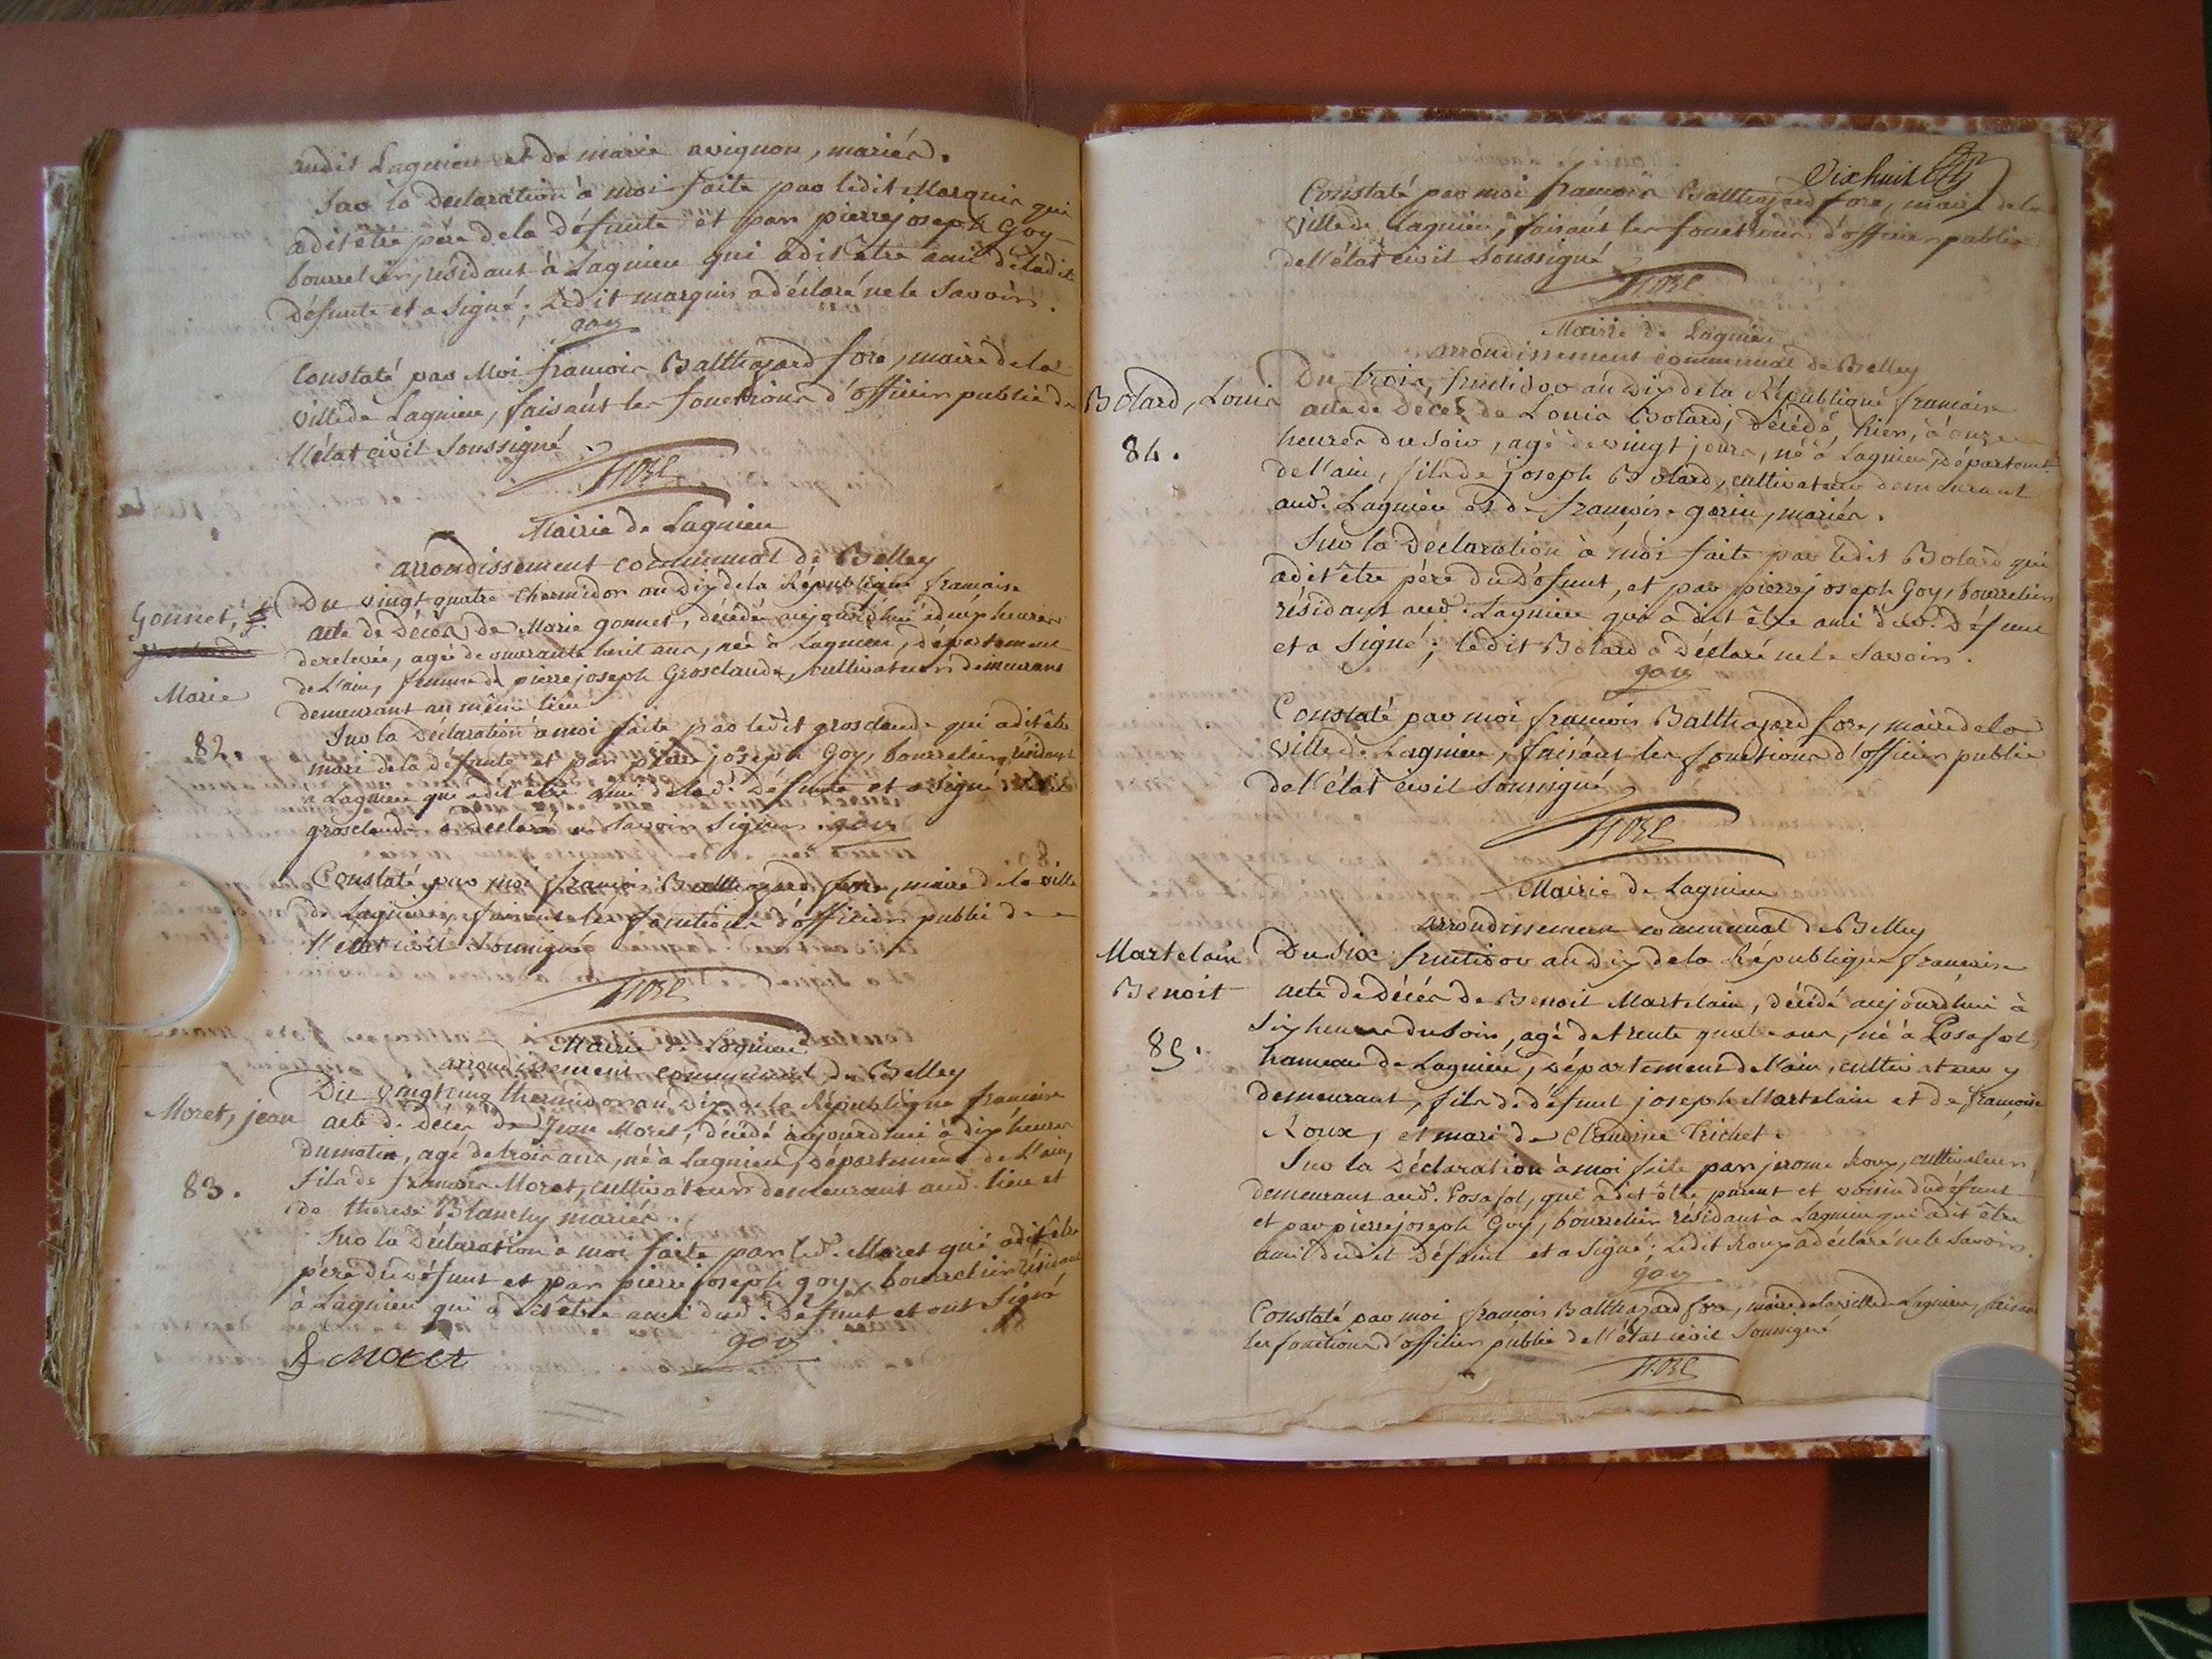 audit Lagnieu et de marie avignon, mariés.
Sur la déclaration à moi faite par ledit Marquis qui
a dit être père de la défunte et par pierre joseph Goy
bourrelier, résidant à Lagnieu qui a dit être ami de ladite
défunte et a signé; Ledit marquis a déclaré ne le savoir.
goy
Constaté par Moi françois Balthazard fore, maire de la
ville de Lagnieu, faisant les fonctions d'officier public de
l'état civil soussigné
fore
Mairie de Lagnieu
arrondissement communal de Belley
Gonnet,
Marie
82.
Du vingt quatre thermidor an dix de la République françoise
acte de décès de Marie gonnet, décédée aujourd'hui à neuf heures
de relevée, agée de quarante huit ans, née à Lagnieu, département
de L'ain, femme de pierre joseph Grosclaude, cultivateur demeurant
demeurant au même lieu.
Sur la déclaration à moi faite par ledit grosclaude qui a dit être
mari de la défunte et par pierre joseph Goy, bourrelier, résidant
à Lagnieu qui a dit être ami de lad. défunte et a signé ledit
grosclaude a déclaré ne savoir signer. goy
Constaté par moi françois Balthazard fore, maire de la ville
de Lagnieu, faisant les fonctions d'officier public de
l'état civil soussigné
fore
Mairie de Lagnieu
arrondissement communal de Belley
Moret, jean
83.
Du vingt cinq thermidor an dix de la République françoise
acte de décès de Jean Moret, décédé aujourd'hui à dix heures
du matin, agé de trois ans, né à Lagnieu, département de L'ain,
fils de françois Moret, cultivateur demeurant aud. lieu et
de therese Blanchy mariés.
Sur la déclaration à moi faite par led. Moret qui a dit être
père du défunt et par pierre joseph goy, bourrelier résidant
à Lagnieu qui a dit être ami dud. défunt et ont signé
goy
f moret
Dix huit
Constaté par moi françois Balthazard fore, maire de la
ville de Lagnieu, faisant les fonctions d'officier public
de l'état civil soussigné
fore
Mairie de Lagnieu
arrondissement communal de Belley
Botard, Louis
84.
Du trois fructidor an dix de la République françoise
acte de décès de Louis Botard, décédé, hier, à onze
heures du soir, agé de vingt jours, né à Lagnieu, départemt
de l'ain, fils de joseph Botard, cultivateur demeurant
aud. Lagnieu et de françoise gorin, mariés.
Sur la déclaration à moi faite par ledit Botard qui
a dit être père du défunt, et par pierre joseph Goy, bourrelier
résidant aud. Lagnieu qui a dit être ami dud. défunt
et a signé; ledit Botard a déclaré ne le savoir.
goy
Constaté par moi françois Balthazard fore, maire de la
ville de Lagnieu, faisant les fonctions d'officier public
de l'état civil soussigné
fore
Mairie de Lagnieu
arrondissement communal de Belley
Martelain
Benoit
85.
Du six fructidor an dix de la République françoise
acte de décès de Benoit Martelain, décédé aujourdhui à
six heures du soir, agé de trente quatre ans, né à Posafol,
hameau de Lagnieu, département de l'ain, cultivateur y
demeurant, fils de défunt joseph Martelain et de françoise
Roux, et mari de Claudine Trichet.
Sur la déclaration à moi faite par jerome Roux, cultivateur,
demeurant aud. Posafol, qui a dit être parent et voisin du défunt
et par pierre joseph Goy, bourrelier résidant à Lagnieu qui a dit être
ami dudit défunt et a signé; Ledit Roux a déclaré ne le savoir.
goy
Constaté par moi françois Balthazard fore, maire de la ville de Lagnieu, faisant
les fonctions d'officier public de l'état civil soussigné
fore